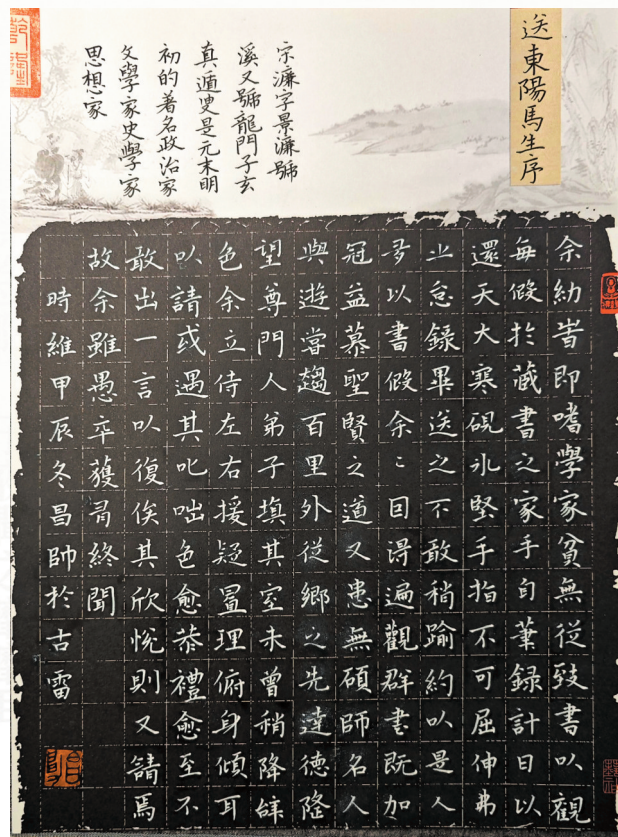 送東陽馬生序
宋濂字景濂號
溪又號龍門子玄
真遁叟是元末明
初的著名政治家
文學家史學家
思想家
余幼旹即嗜學家貧無從致書以觀
每假於藏書之家手自筆録計日以
還天大寒硯氷堅手指不可屈伸弗
之怠錄畢送之不敢稍踰約以是人
多以書假余〻因得遍觀群書既加
冠益慕聖賢之道又患無碩師名人
與遊嘗趨百里外從鄉之先達德隆
望尊門人弟子填其室未曾稍降辭
色余立侍左右援疑置理俯身傾耳
以請或遇其叱咄色愈恭禮愈至不
敢出一言以復俟其欣悅則又請焉
故余雖愚卒獲有終聞
時維甲辰冬昌帥於古雷